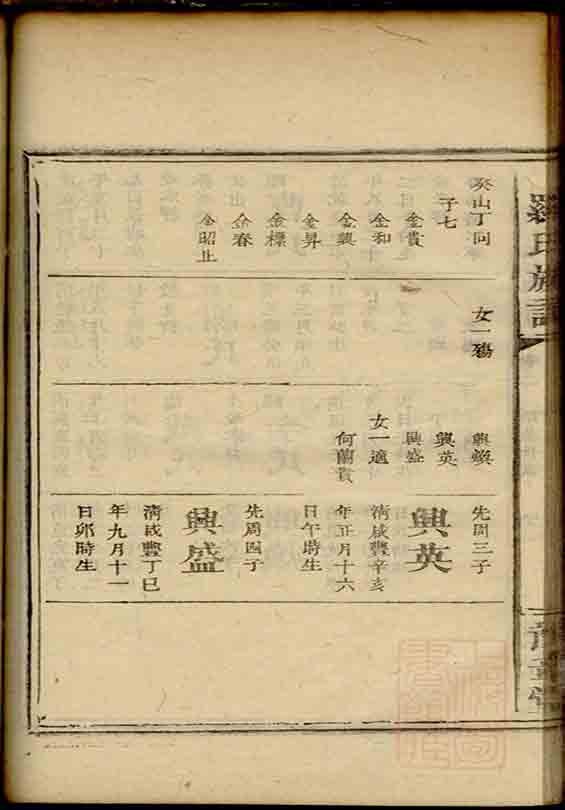 羅氏族譜
癸山丁向
子七
金貴
金和
金興
金昇
金標
金春
金昭止
女一殤
興英
興盛
女一適
何蘭貴
先周三子
興英
清咸豐辛亥
年正月十六
日午時生
先周四子
興盛
清咸豐丁巳
年九月十一
日卯時生